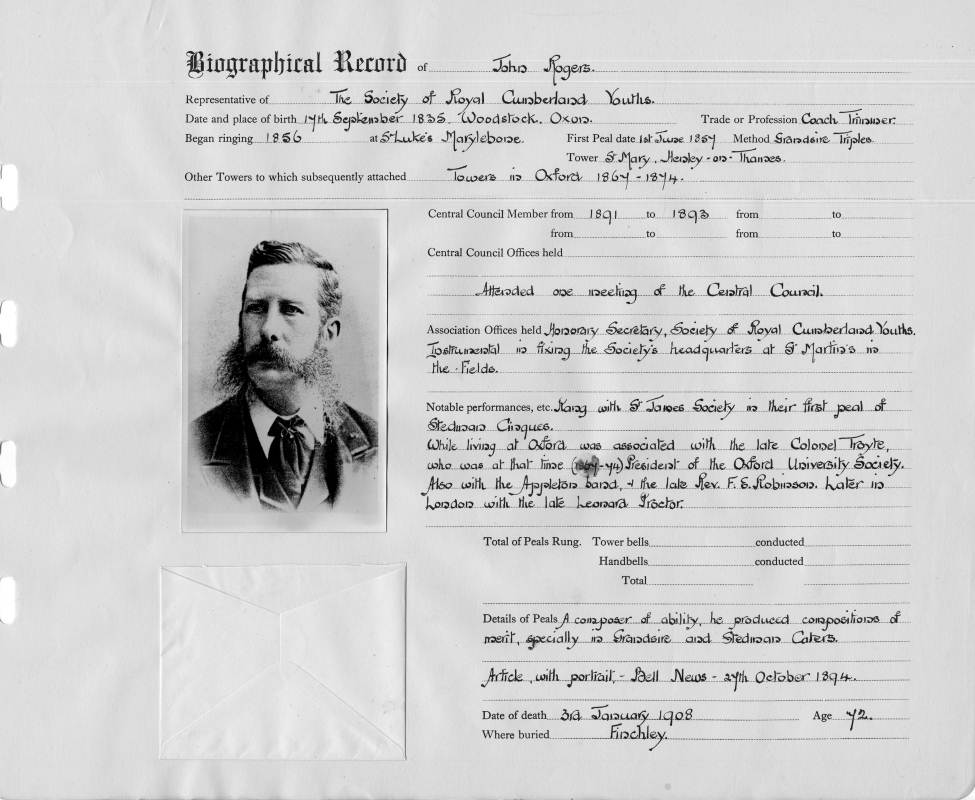 Biographical Record of John Rogers.
Representative of The Society of Royal Cumberland Youths.
Date and place of birth 17th September 1835. Woodstock. Oxon. Trade or Profession Coach Trimmer.
Began ringing 1856 at St Luke's Marylebone. First Peal date 1st June 1857 Method Grandsire Triples.
Tower St Mary, Henley-on-Thames.
Other Towers to which subsequently attached Towers in Oxford 1867-1874.
Central Council Member from 1891 to 1893 from to
from to from to
Central Council Offices held
Attended one meeting of the Central Council.
Association Offices held Honorary Secretary, Society of Royal Cumberland Youths.
Instrumental in fixing the Society's headquarters at St Martin's in
the-Fields.
Notable performances, etc. Rang with St James Society in their first peal of
Stedman Cinques.
While living at Oxford was associated with the late Colonel Troyte,
who was at that time (1867-74) President of the Oxford University Society.
Also with the Appleton band, & the late Rev. F. E. Robinson. Later in
London with the late Leonard Proctor.
Total of Peals Rung. Tower bells conducted
Handbells conducted
Total
Details of Peals A composer of ability, he produced compositions of
merit, specially in Grandsire and Stedman Caters.
Article, with portrait,- Bell News - 27th October 1894.
Date of death 3rd January 1908 Age 72.
Where buried Finchley.